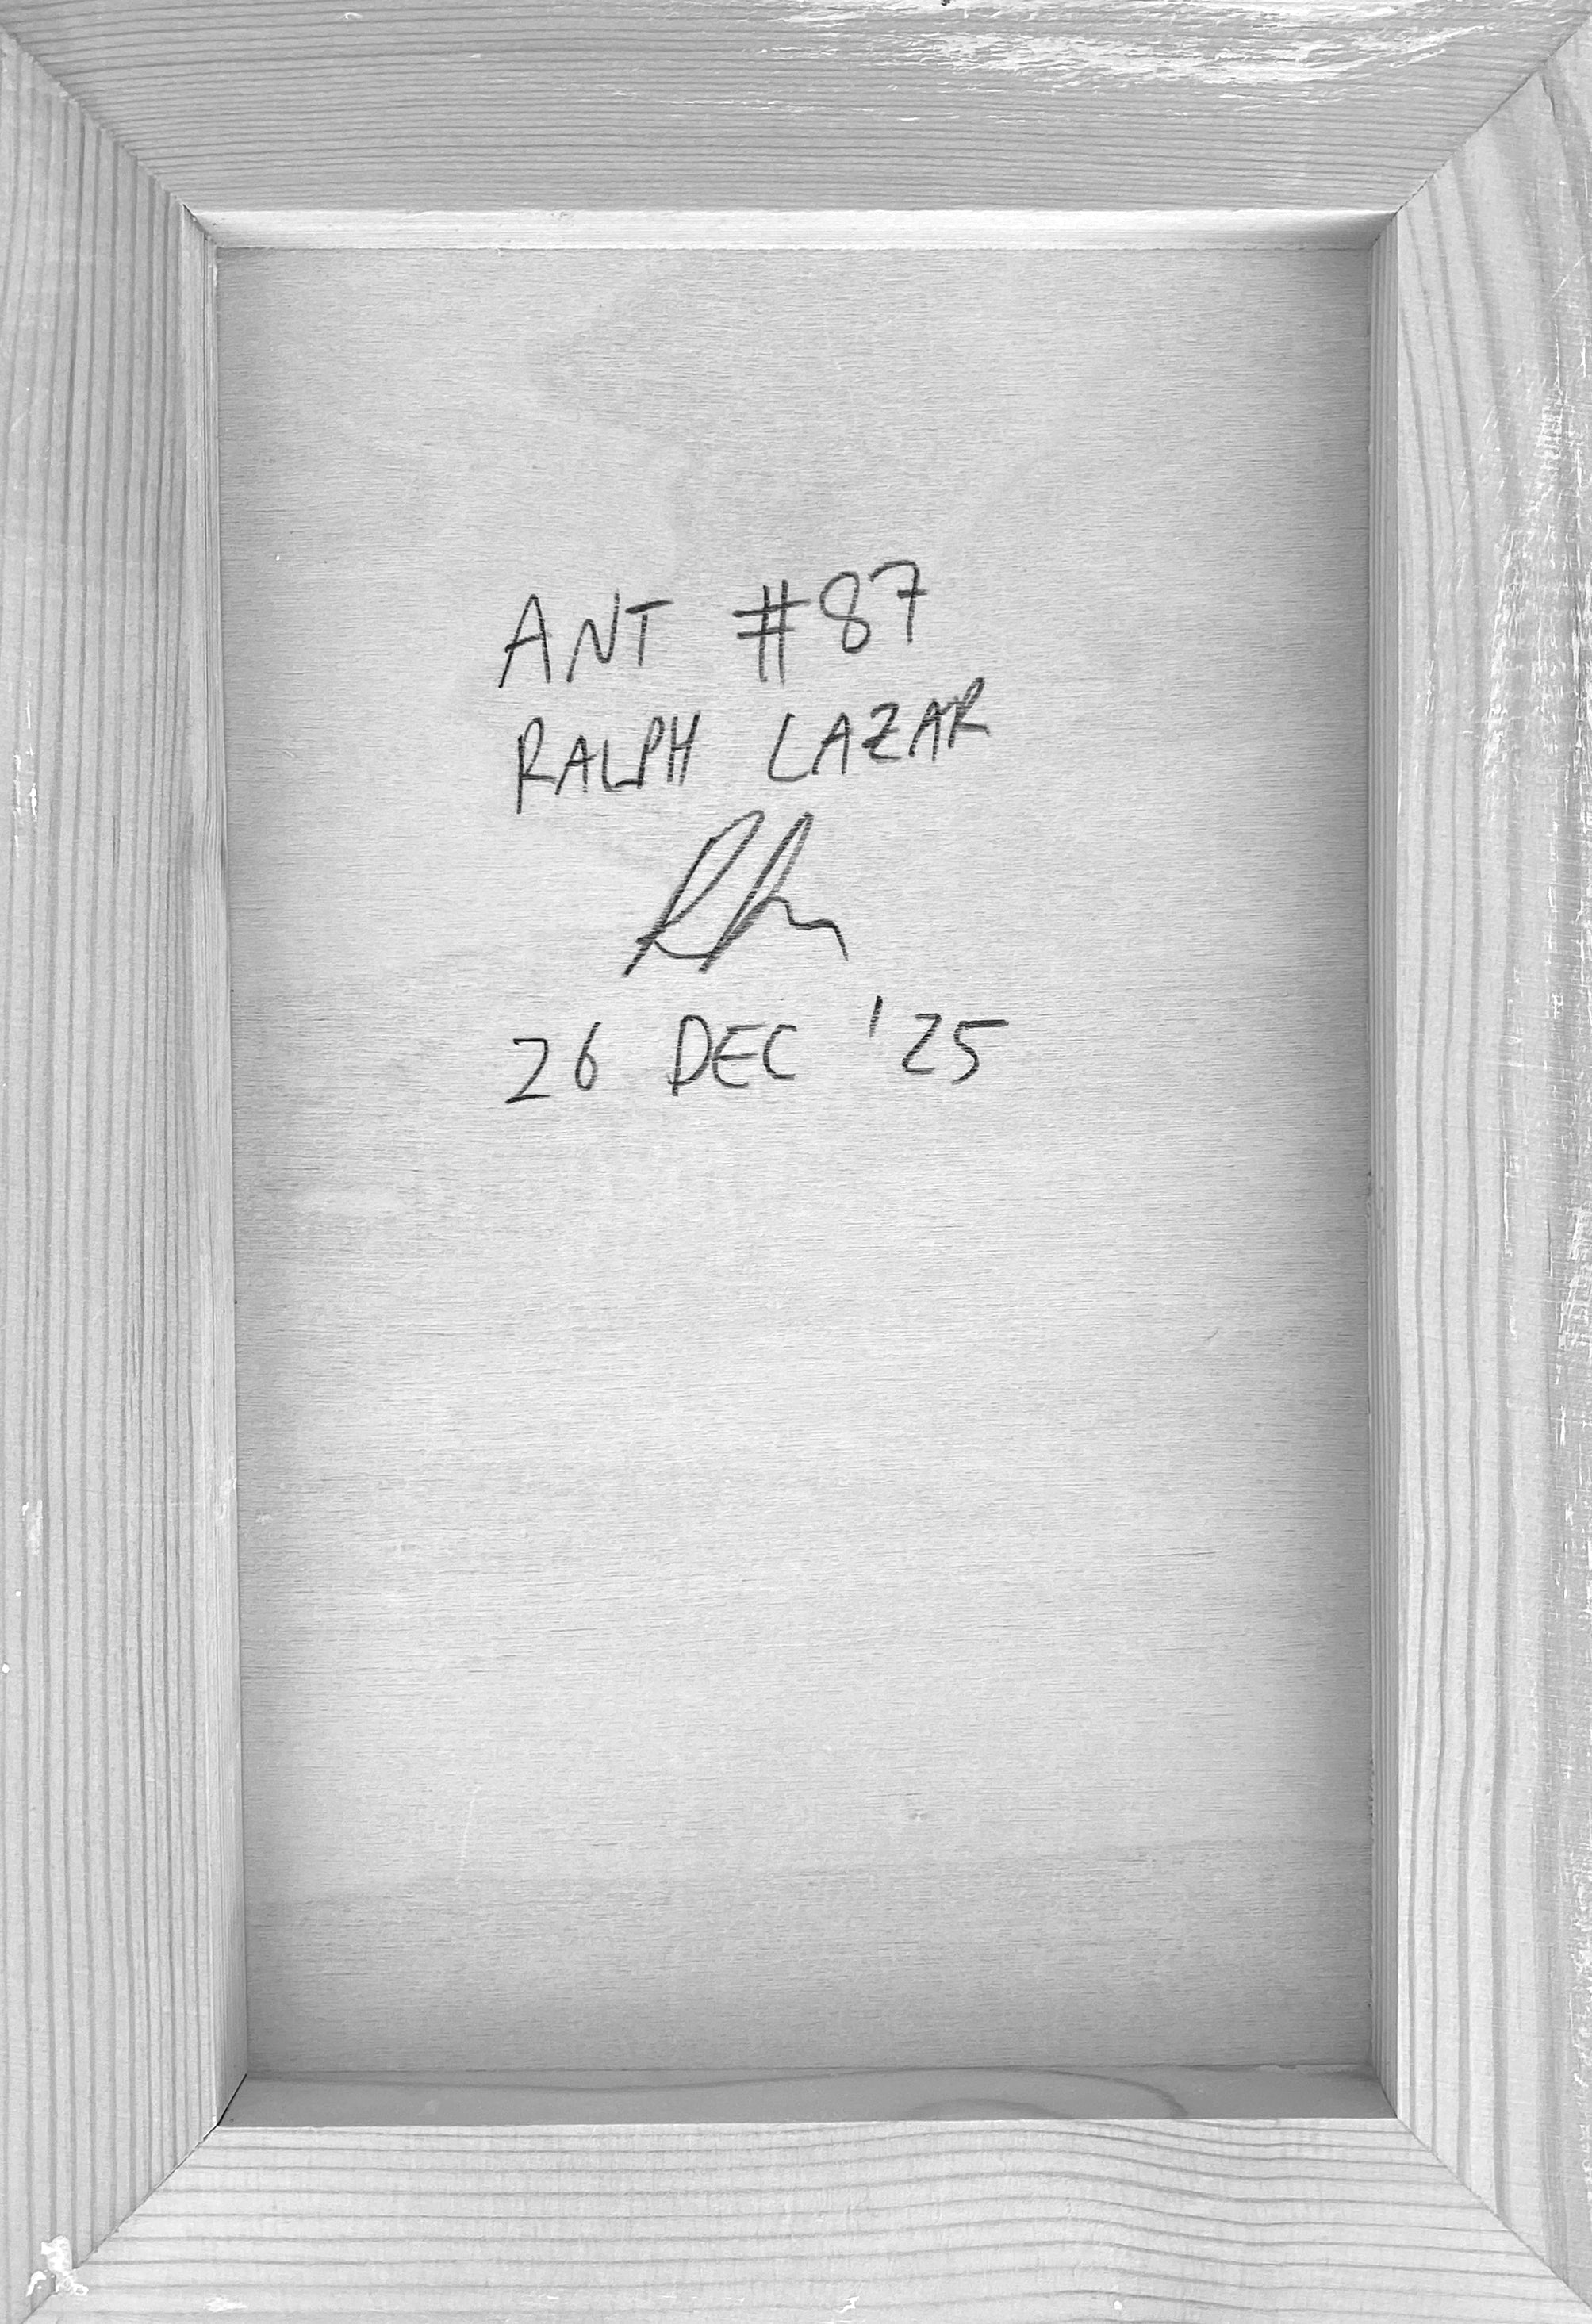 ANT #87
RALPH LAZAR
26 DEC '25